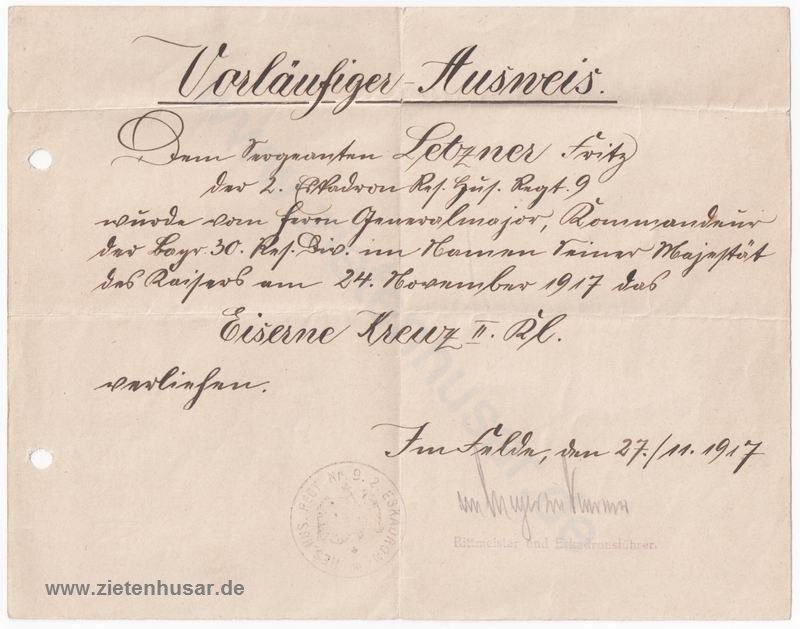 Vorläufiger-Ausweis.
Dem Sergeanten Letzner Fritz
der 2. Eskadron Res. Hus. Regt. 9
wurde vom Herrn Generalmajor, Kommandeur
der bayr. 30. Res. Div. im Namen Seiner Majestät
des Kaisers am 24. November 1917 das
Eiserne Kreuz II. Kl.
verliehen.
Im Felde, den 27./11. 1917
Rittmeister und Eskadronsführer.
RES. HUS. REGT. Nr. 9. 2. ESKADRON
www.zietenhusar.de